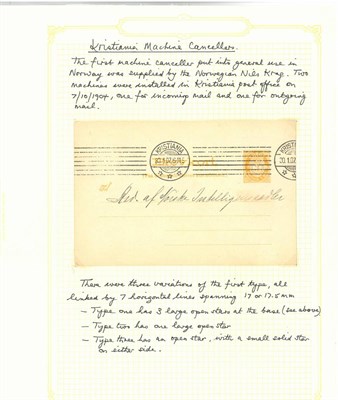 Kristiania Machine Cancellers.
The first machine canceller put into general use in
Norway was supplied by the Norwegian Nils Krag. Two
machines were installed in Kristiania post office on
7/10/1904, one for incoming mail and one for outgoing
mail.
KRISTIANIA
KRISTIANIA
Red. af Norske Intelligenssedler
There were three variations of the first type, all
linked by 7 horizontal lines spanning 17 or 17.5mm
- Type one has 3 large open stars at the base (see above)
- Type two has one large open star
- Type three has an open star, with a small solid star
on either side.